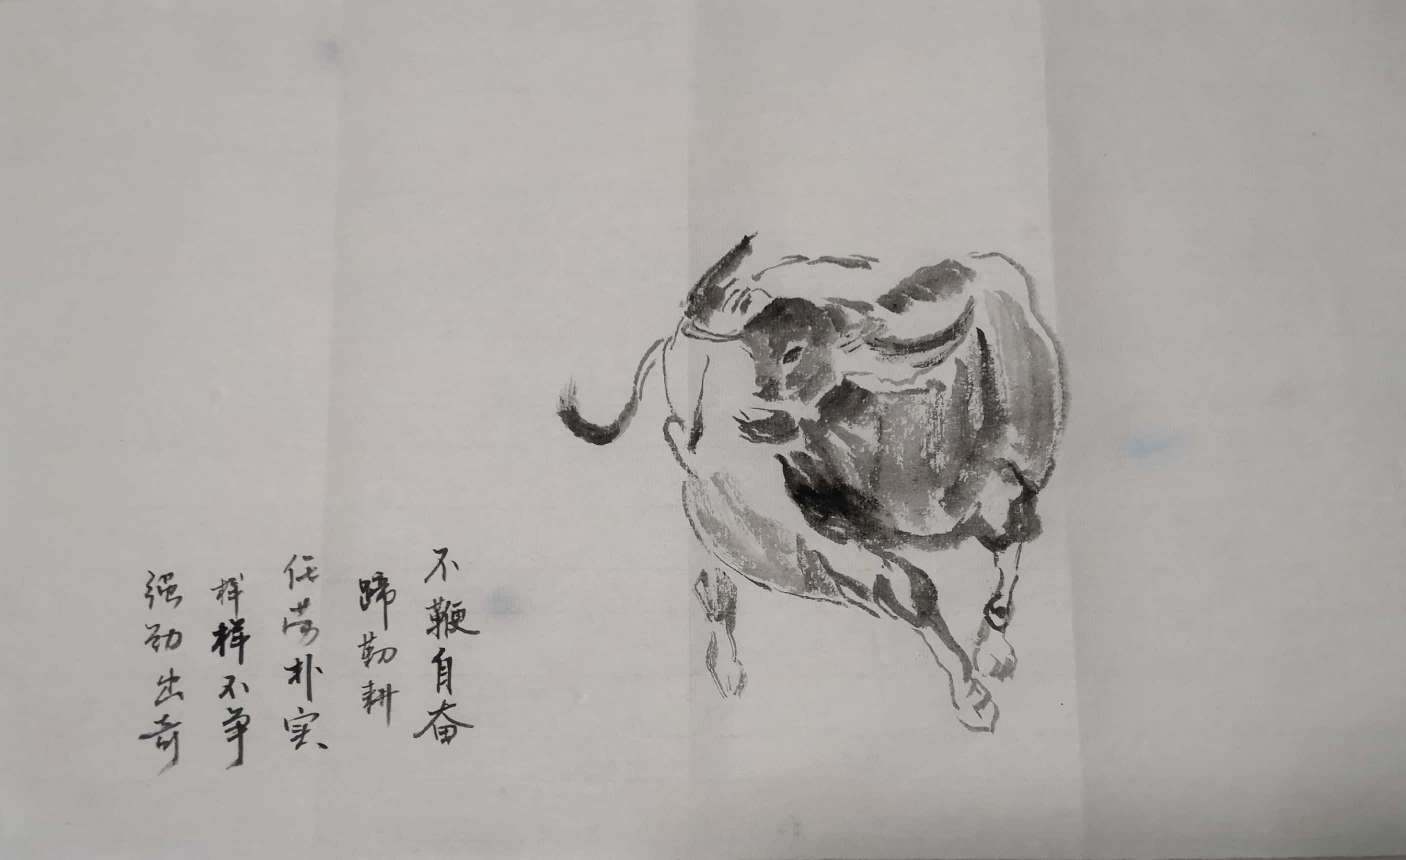 不鞭自奋
蹄勤耕
任劳朴实
样样不争
强劲出奇